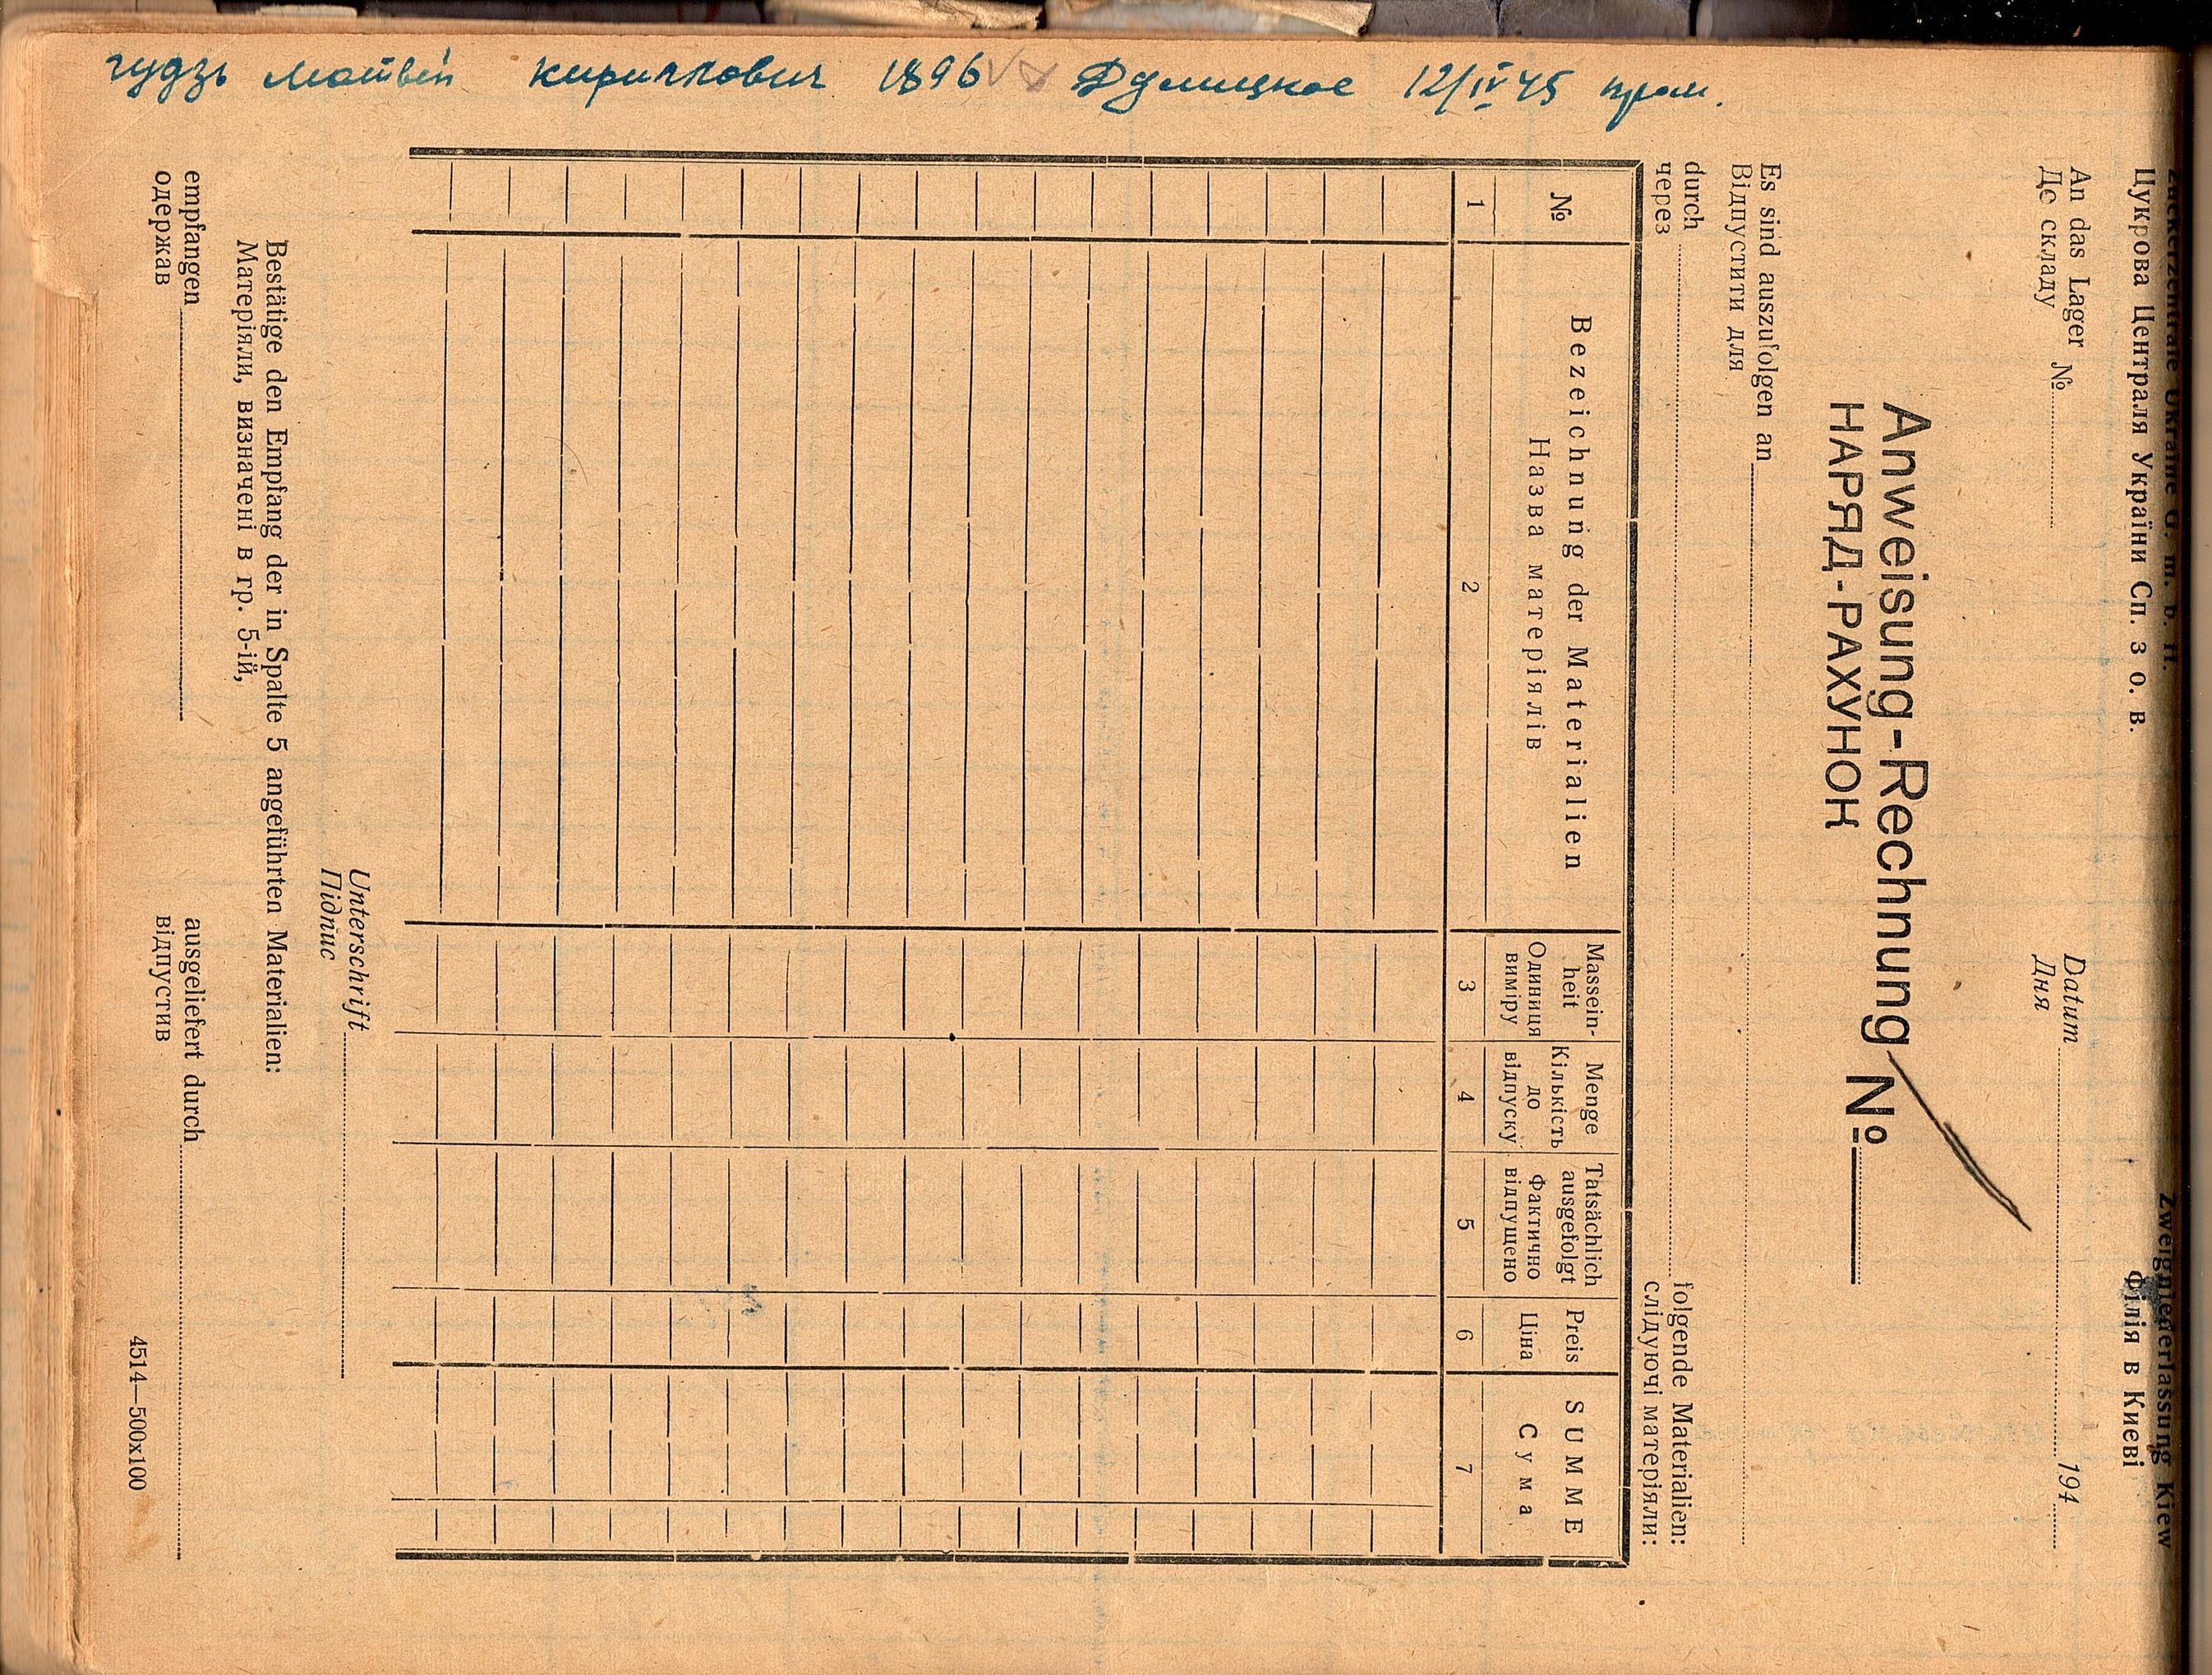 гудзь Матвей Кириллович 1896 Дулицкое 12/IV 45
Zuckerzentrale Ukraine G. m. b. H. Zweigniederlassung Kiew
Цукрова Централя України Сп. з о. в. Філія в Києві
An das Lager №
До складу
Datum 194
Дня
Anweisung-Rechnung №
НАРЯД-РАХУНОК
Es sind auszufolgen an
Відпустити для
durch folgende Materialien:
через слідуючі матеріяли:
№ Bezeichnung der Materialien Massein-heit Menge Tatsächlich ausgefolgt Preis SUMME
Назва матеріялів Одиниця виміру Кількість до відпуску Фактично відпущено Ціна Сума
1 2 3 4 5 6 7
Unterschrift
Підпис
Bestätige den Empfang der in Spalte 5 angeführten Materialien:
Матеріяли, визначені в гр. 5-ій,
empfangen ausgeliefert durch
одержав відпустив
4514—500x100